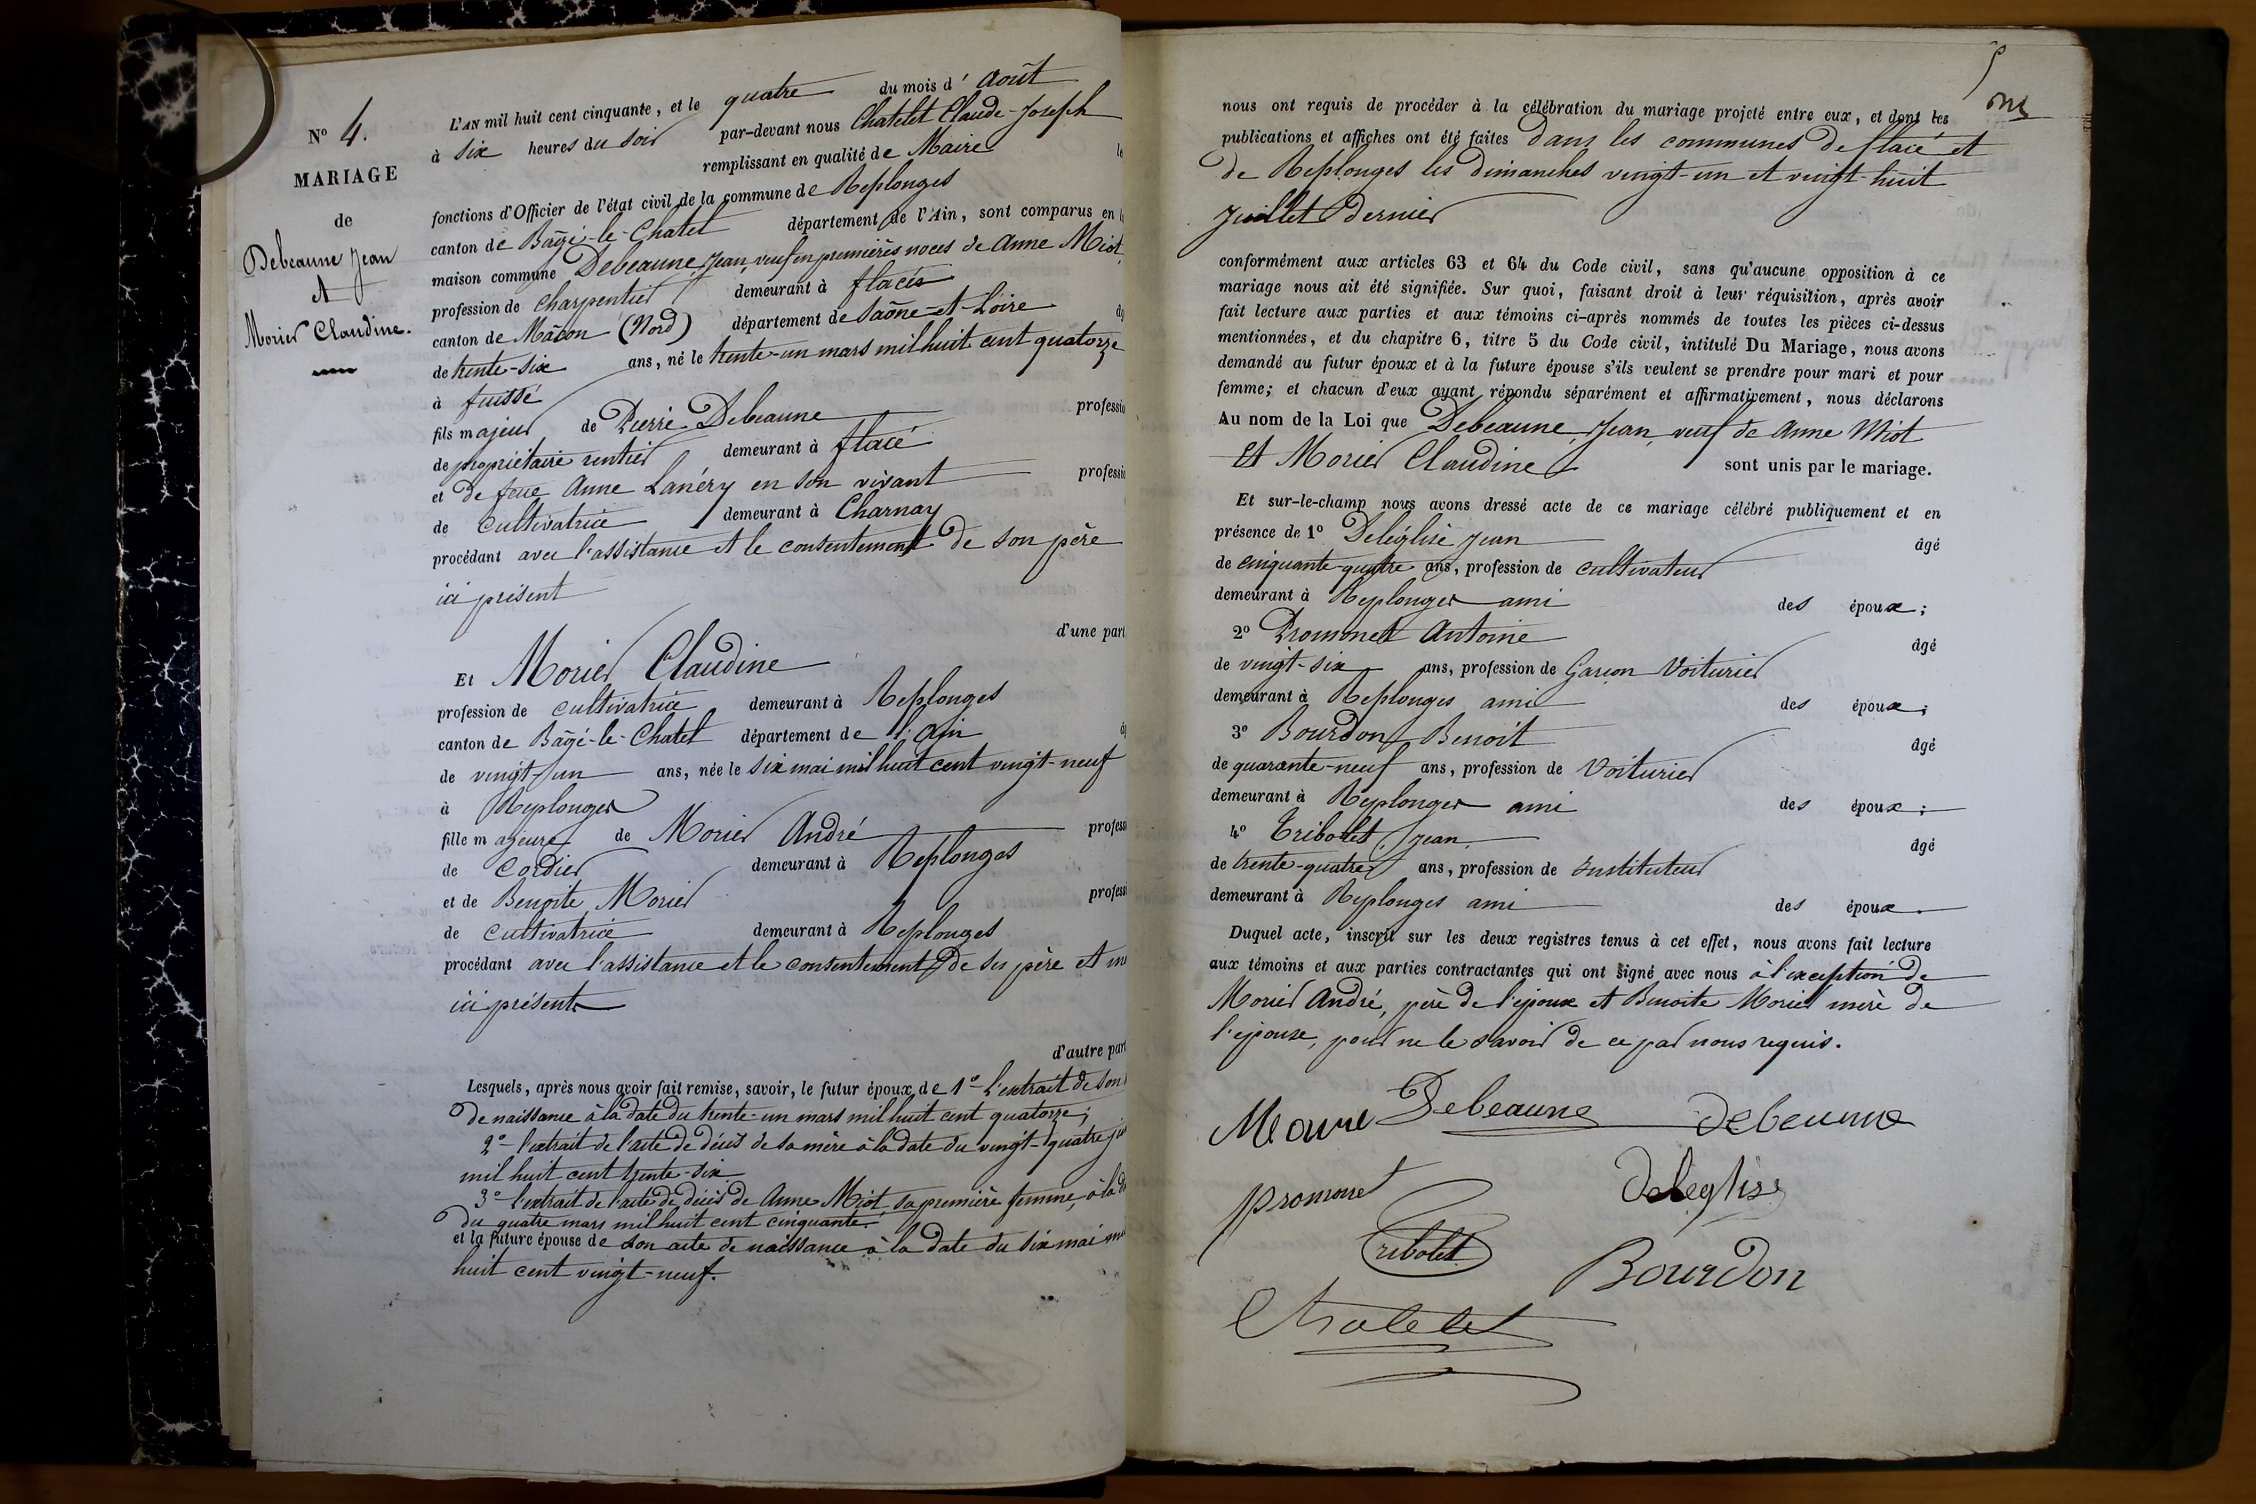 N° 4.
MARIAGE
de
Debeaune Jean
et
Morier Claudine.
L'AN mil huit cent cinquante, et le quatre du mois d'Août
à six heures du soir par-devant nous Chatelet Claude-Joseph
remplissant en qualité de Maire le
fonctions d'Officier de l'état civil de la commune de Replonges
canton de Bâgé-le-Chatel département de l'Ain, sont comparus en
maison commune Debeaune Jean, veuf en premières noces de Anne Miot,
profession de charpentier demeurant à flacés
canton de Mâcon (Nord) département de Saône-et-Loire
de trente-six ans, né le trente-un mars mil huit cent quatorze
à fuissé
fils majeur de Pierre Debeaune professio
de propriétaire rentier demeurant à flacé
et de feue Anne Lanéry en son vivant professio
de cultivatrice demeurant à Charnay
procédant avec l'assistance et le consentement de son père
ici présent
d'une part
Et Morier Claudine
profession de cultivatrice demeurant à Replonges
canton de Bâgé-le-Chatel département de l'Ain
de vingt-un ans, née le six mai mil huit cent vingt-neuf
à Replonges
fille majeure de Morier André profess
de Cordier demeurant à Replonges
et de Benoite Morier profess
de cultivatrice demeurant à Replonges
procédant avec l'assistance et le consentement de ses père et
ici présents
d'autre part
Lesquels, après nous avoir fait remise, savoir, le futur époux, de 1° l'extrait de son
de naissance à la date du trente-un mars mil huit cent quatorze;
2° l'extrait de l'acte de décès de sa mère à la date du vingt-quatre
mil huit cent trente-six
3° l'extrait de l'acte de décès de Anne Miot sa première femme, à la
du quatre mars mil huit cent cinquante.
et la future épouse de son acte de naissance à la date du six mai
huit cent vingt-neuf.
nous ont requis de procéder à la célébration du mariage projeté entre eux, et dont les
publications et affiches ont été faites dans les communes de flacé et
de Replonges les dimanches vingt-un et vingt-huit
juillet dernier
conformément aux articles 63 et 64 du Code civil, sans qu'aucune opposition à ce
mariage nous ait été signifiée. Sur quoi, faisant droit à leur réquisition, après avoir
fait lecture aux parties et aux témoins ci-après nommés de toutes les pièces ci-dessus
mentionnées, et du chapitre 6, titre 5 du Code civil, intitulé Du Mariage, nous avons
demandé au futur époux et à la future épouse s'ils veulent se prendre pour mari et pour
femme; et chacun d'eux ayant répondu séparément et affirmativement, nous déclarons
Au nom de la Loi que Debeaune Jean veuf de Anne Miot
Et Morier Claudine sont unis par le mariage.
Et sur-le-champ nous avons dressé acte de ce mariage célébré publiquement et en
présence de 1° Deléglise Jean âgé
de cinquante-quatre ans, profession de cultivateur
demeurant à Replonges ami des époux;
2° Prommet Antoine âgé
de vingt-six ans, profession de Garçon Voiturier
demeurant à Replonges ami des époux;
3° Bourdon Benoit âgé
de quarante-neuf ans, profession de Voiturier
demeurant à Replonges ami des époux;
4° Tribolet Jean âgé
de trente-quatre ans, profession de Instituteur
demeurant à Replonges ami des époux.
Duquel acte, inscrit sur les deux registres tenus à cet effet, nous avons fait lecture
aux témoins et aux parties contractantes qui ont signé avec nous à l'exception de
Morier André, père de l'épouse et Benoite Morier mère de
l'épouse, pour ne le savoir de ce par nous requis.
Debeaune debeaune
prommet deléglise
tribolet Bourdon
Chatelet